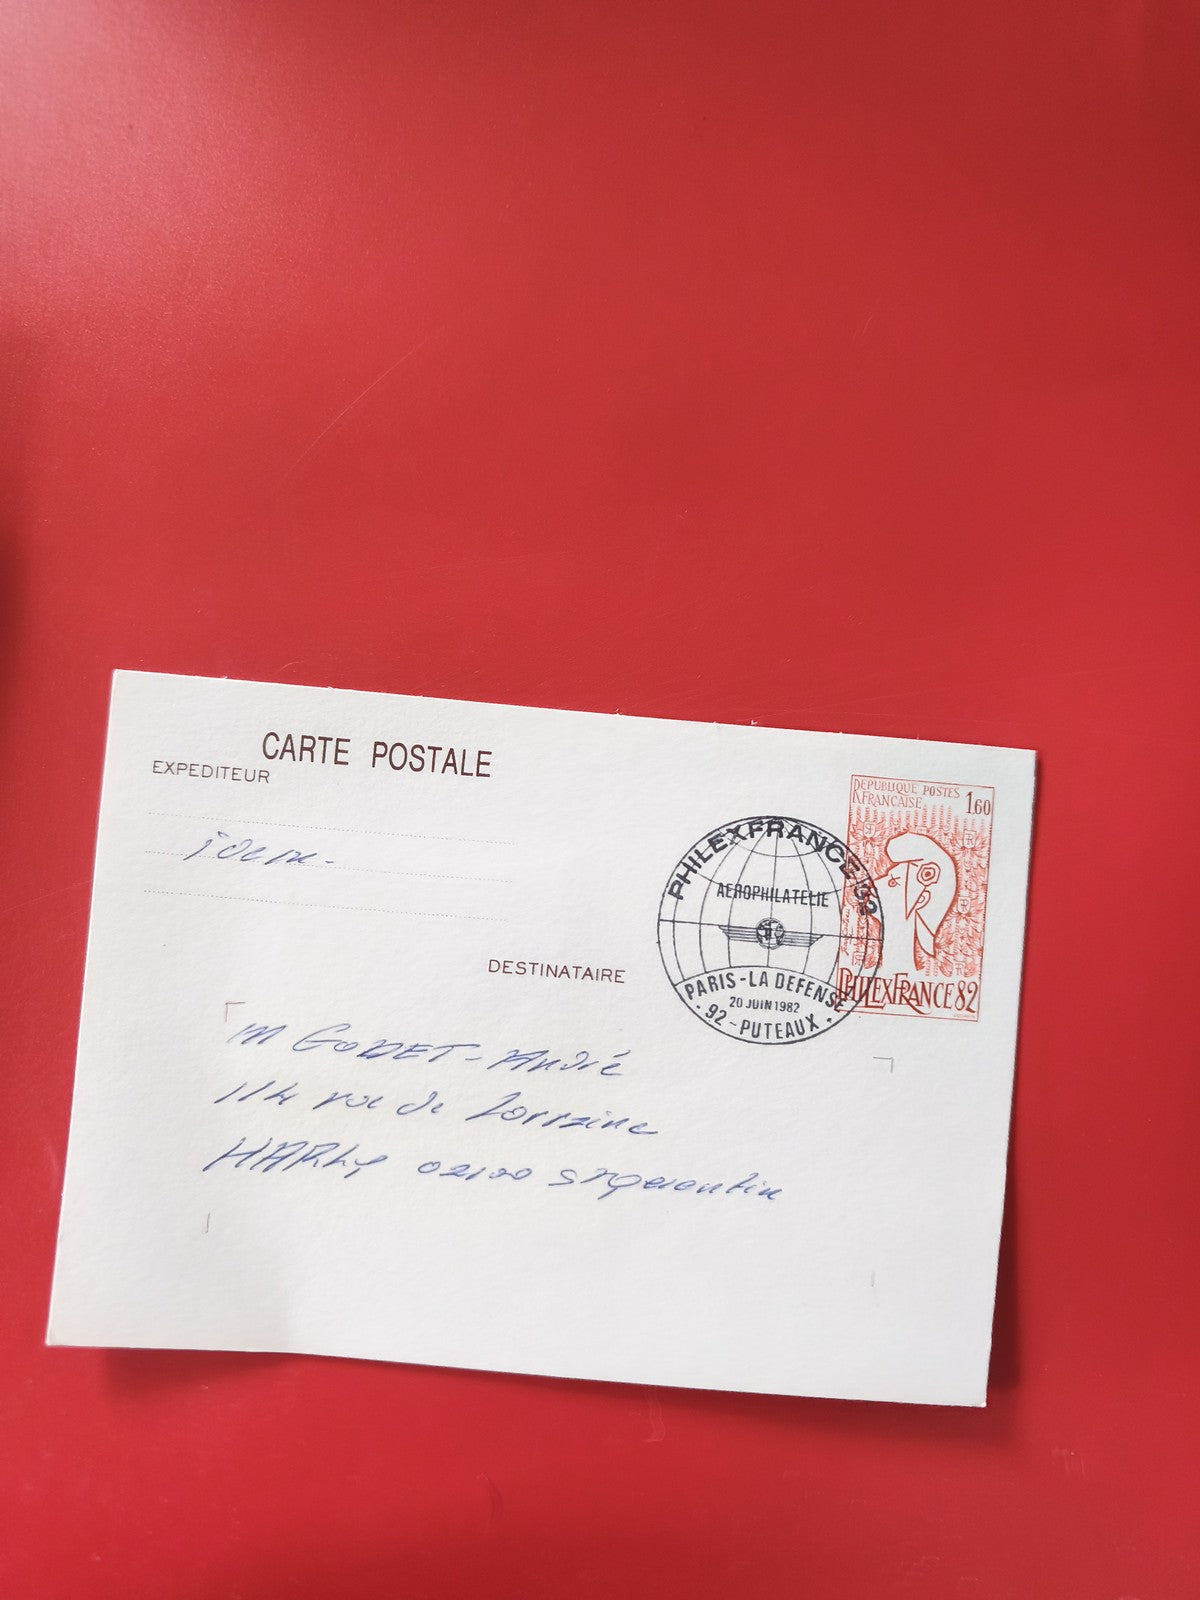 CARTE POSTALE
EXPEDITEUR
idem.
REPUBLIQUE POSTES
FRANCAISE
1.60
PHILEXFRANCE 82
AEROPHILATELIE
PARIS-LA DEFENSE
20 JUIN 1982
· 92-PUTEAUX ·
PHILEXFRANCE 82
DESTINATAIRE
M GODET-André
114 rue de Lorraine
HARLY 02100 ST Quentin